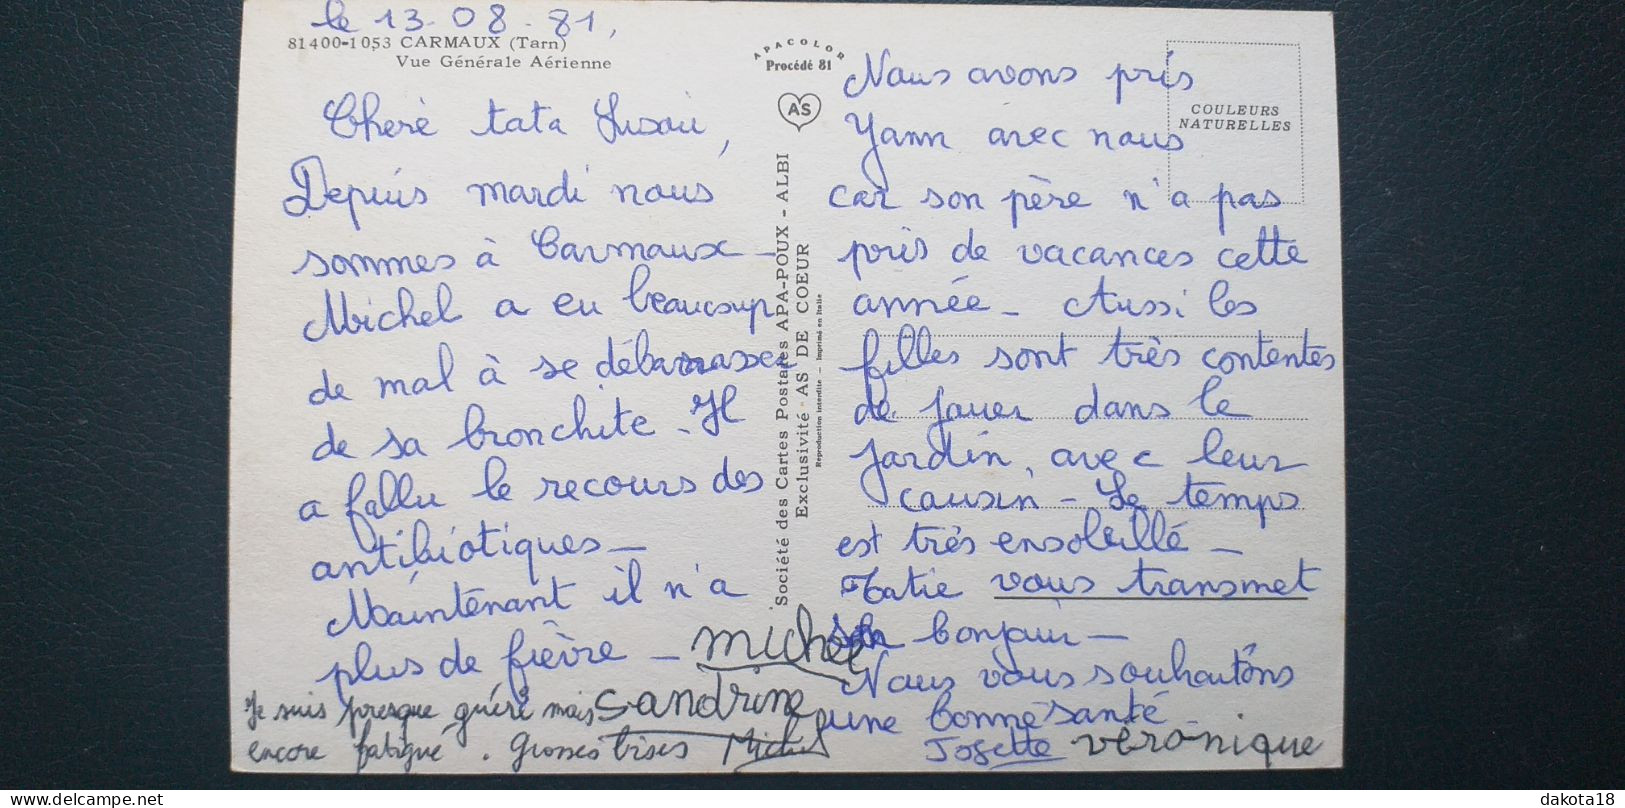 le 13-08-81,
81400-1053 CARMAUX (Tarn)
Vue Générale Aérienne
Cherè tata Susou,
Depuis mardi nous
sommes à Carmaux -
Michel a eu beaucoup
de mal à se débarrasser
de sa bronchite. Il
a fallu le recours des
antibiotiques -
Maintenant il n'a
plus de fièvre -
Michel
Sandrine
Je suis presque guéri mais
encore fatigué. Grosses bises Michel
APACOLOR
Procédé 81
AS
Société des Cartes Postales APA-POUX - ALBI
Exclusivité AS DE COEUR
Reproduction interdite - Imprimé en Italie
COULEURS
NATURELLES
Nous avons pris
Yann avec nous
car son père n'a pas
pris de vacances cette
année - Aussi les
filles sont très contentes
de jouer dans le
jardin, avec leur
cousin - Le temps
est très ensoleillé -
Tatie vous transmet
son bonjour -
Nous vous souhaitons
une bonne santé -
Josette Véronique
dakota18